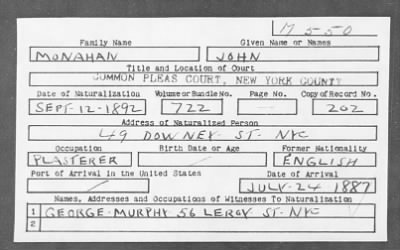 M 550
Family Name Given Name or Names
MONAHAN JOHN
Title and Location of Court
COMMON PLEAS COURT, NEW YORK COUNTY
Date of Naturalization Volume or Bundle No. Page No. Copy of Record No.
SEPT-12-1892 722 — 202
Address of Naturalized Person
49 DOWNEY ST- NYC
Occupation Birth Date or Age Former Nationality
PLASTERER ENGLISH
Port of Arrival in the United States Date of Arrival
JULY-24 1887
Names, Addresses and Occupations of Witnesses To Naturalization
1 GEORGE-MURPHY 56 LEROY ST-NYC
2